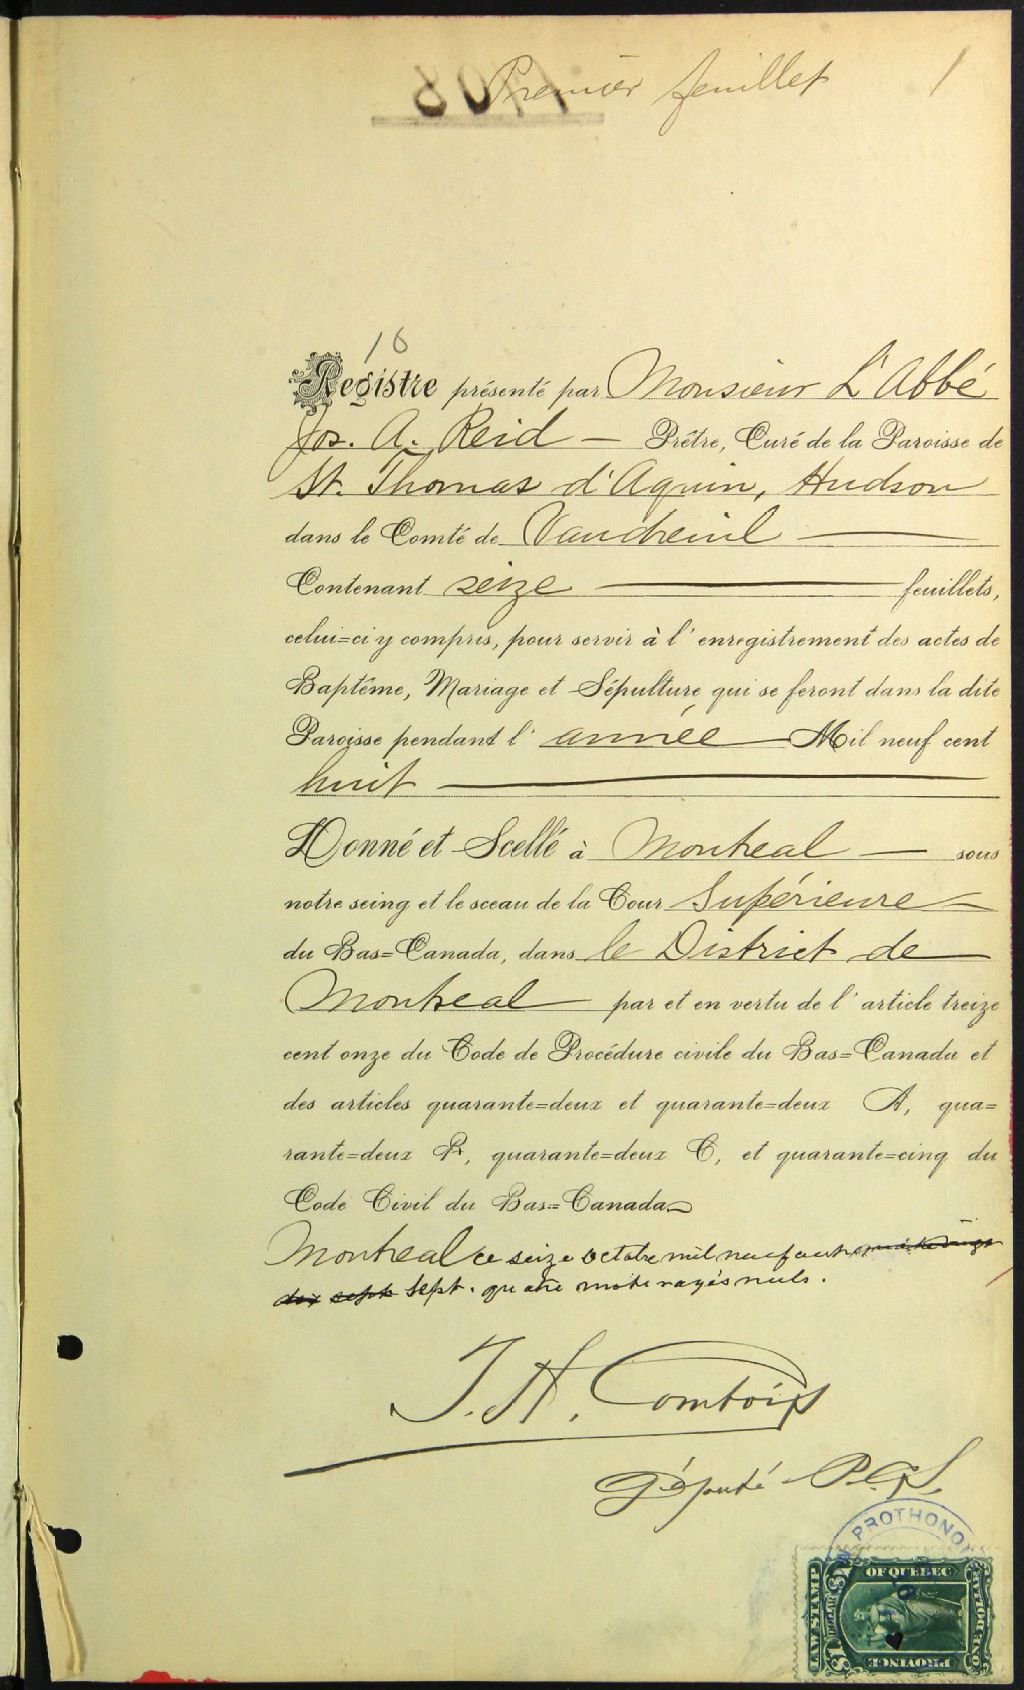 Premier feuillet 1
1908
16
Registre présenté par Monsieur L'Abbé
Jos. A. Reid — Prêtre, Curé de la Paroisse de
St. Thomas d'Aquin, Hudson
dans le Comté de Vaudreuil —
Contenant seize — feuillets,
celui=ci y compris, pour servir à l'enregistrement des actes de
Baptême, Mariage et Sépulture qui se feront dans la dite
Paroisse pendant l'année Mil neuf cent
huit —
Donné et Scellé à Montreal — sous
notre seing et le sceau de la Cour Supérieure —
du Bas=Canada, dans le District de
Montreal par et en vertu de l'article treize
cent onze du Code de Procédure civile du Bas=Canada et
des articles quarante=deux et quarante=deux A, qua=
rante=deux B, quarante=deux C, et quarante=cinq du
Code Civil du Bas=Canada
Montreal ce seize octobre mil neuf cent quatre vingt
dix sept sept. quatre mots rayés nuls.
J. H. Comtois
Député P.C.S.
PROTHONO
LAW STAMP
OF QUEBEC
ONE DOLLAR
PROVINCE
$1 DOLLAR $1